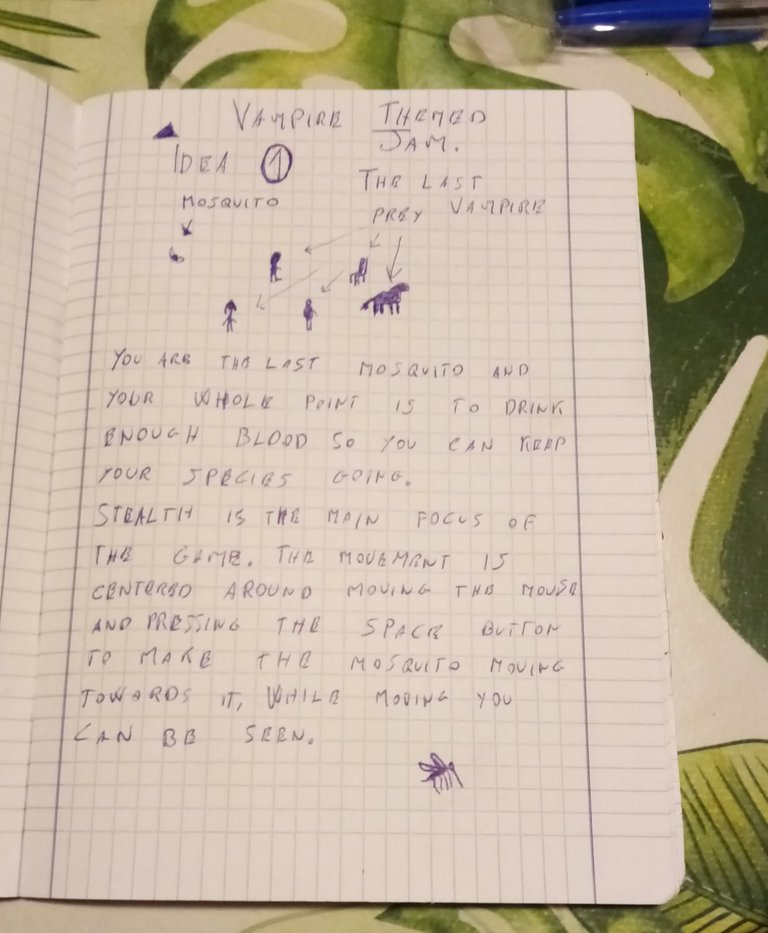 VAMPIRE THEMED
JAM.
IDEA 1
THE LAST
MOSQUITO
PREY VAMPIRE
YOU ARE THE LAST MOSQUITO AND
YOUR WHOLE POINT IS TO DRINK
ENOUGH BLOOD SO YOU CAN KEEP
YOUR SPECIES GOING.
STEALTH IS THE MAIN FOCUS OF
THE GAME. THE MOVEMENT IS
CENTERED AROUND MOVING THE MOUSE
AND PRESSING THE SPACE BUTTON
TO MAKE THE MOSQUITO MOVING
TOWARDS IT, WHILE MOVING YOU
CAN BE SEEN.